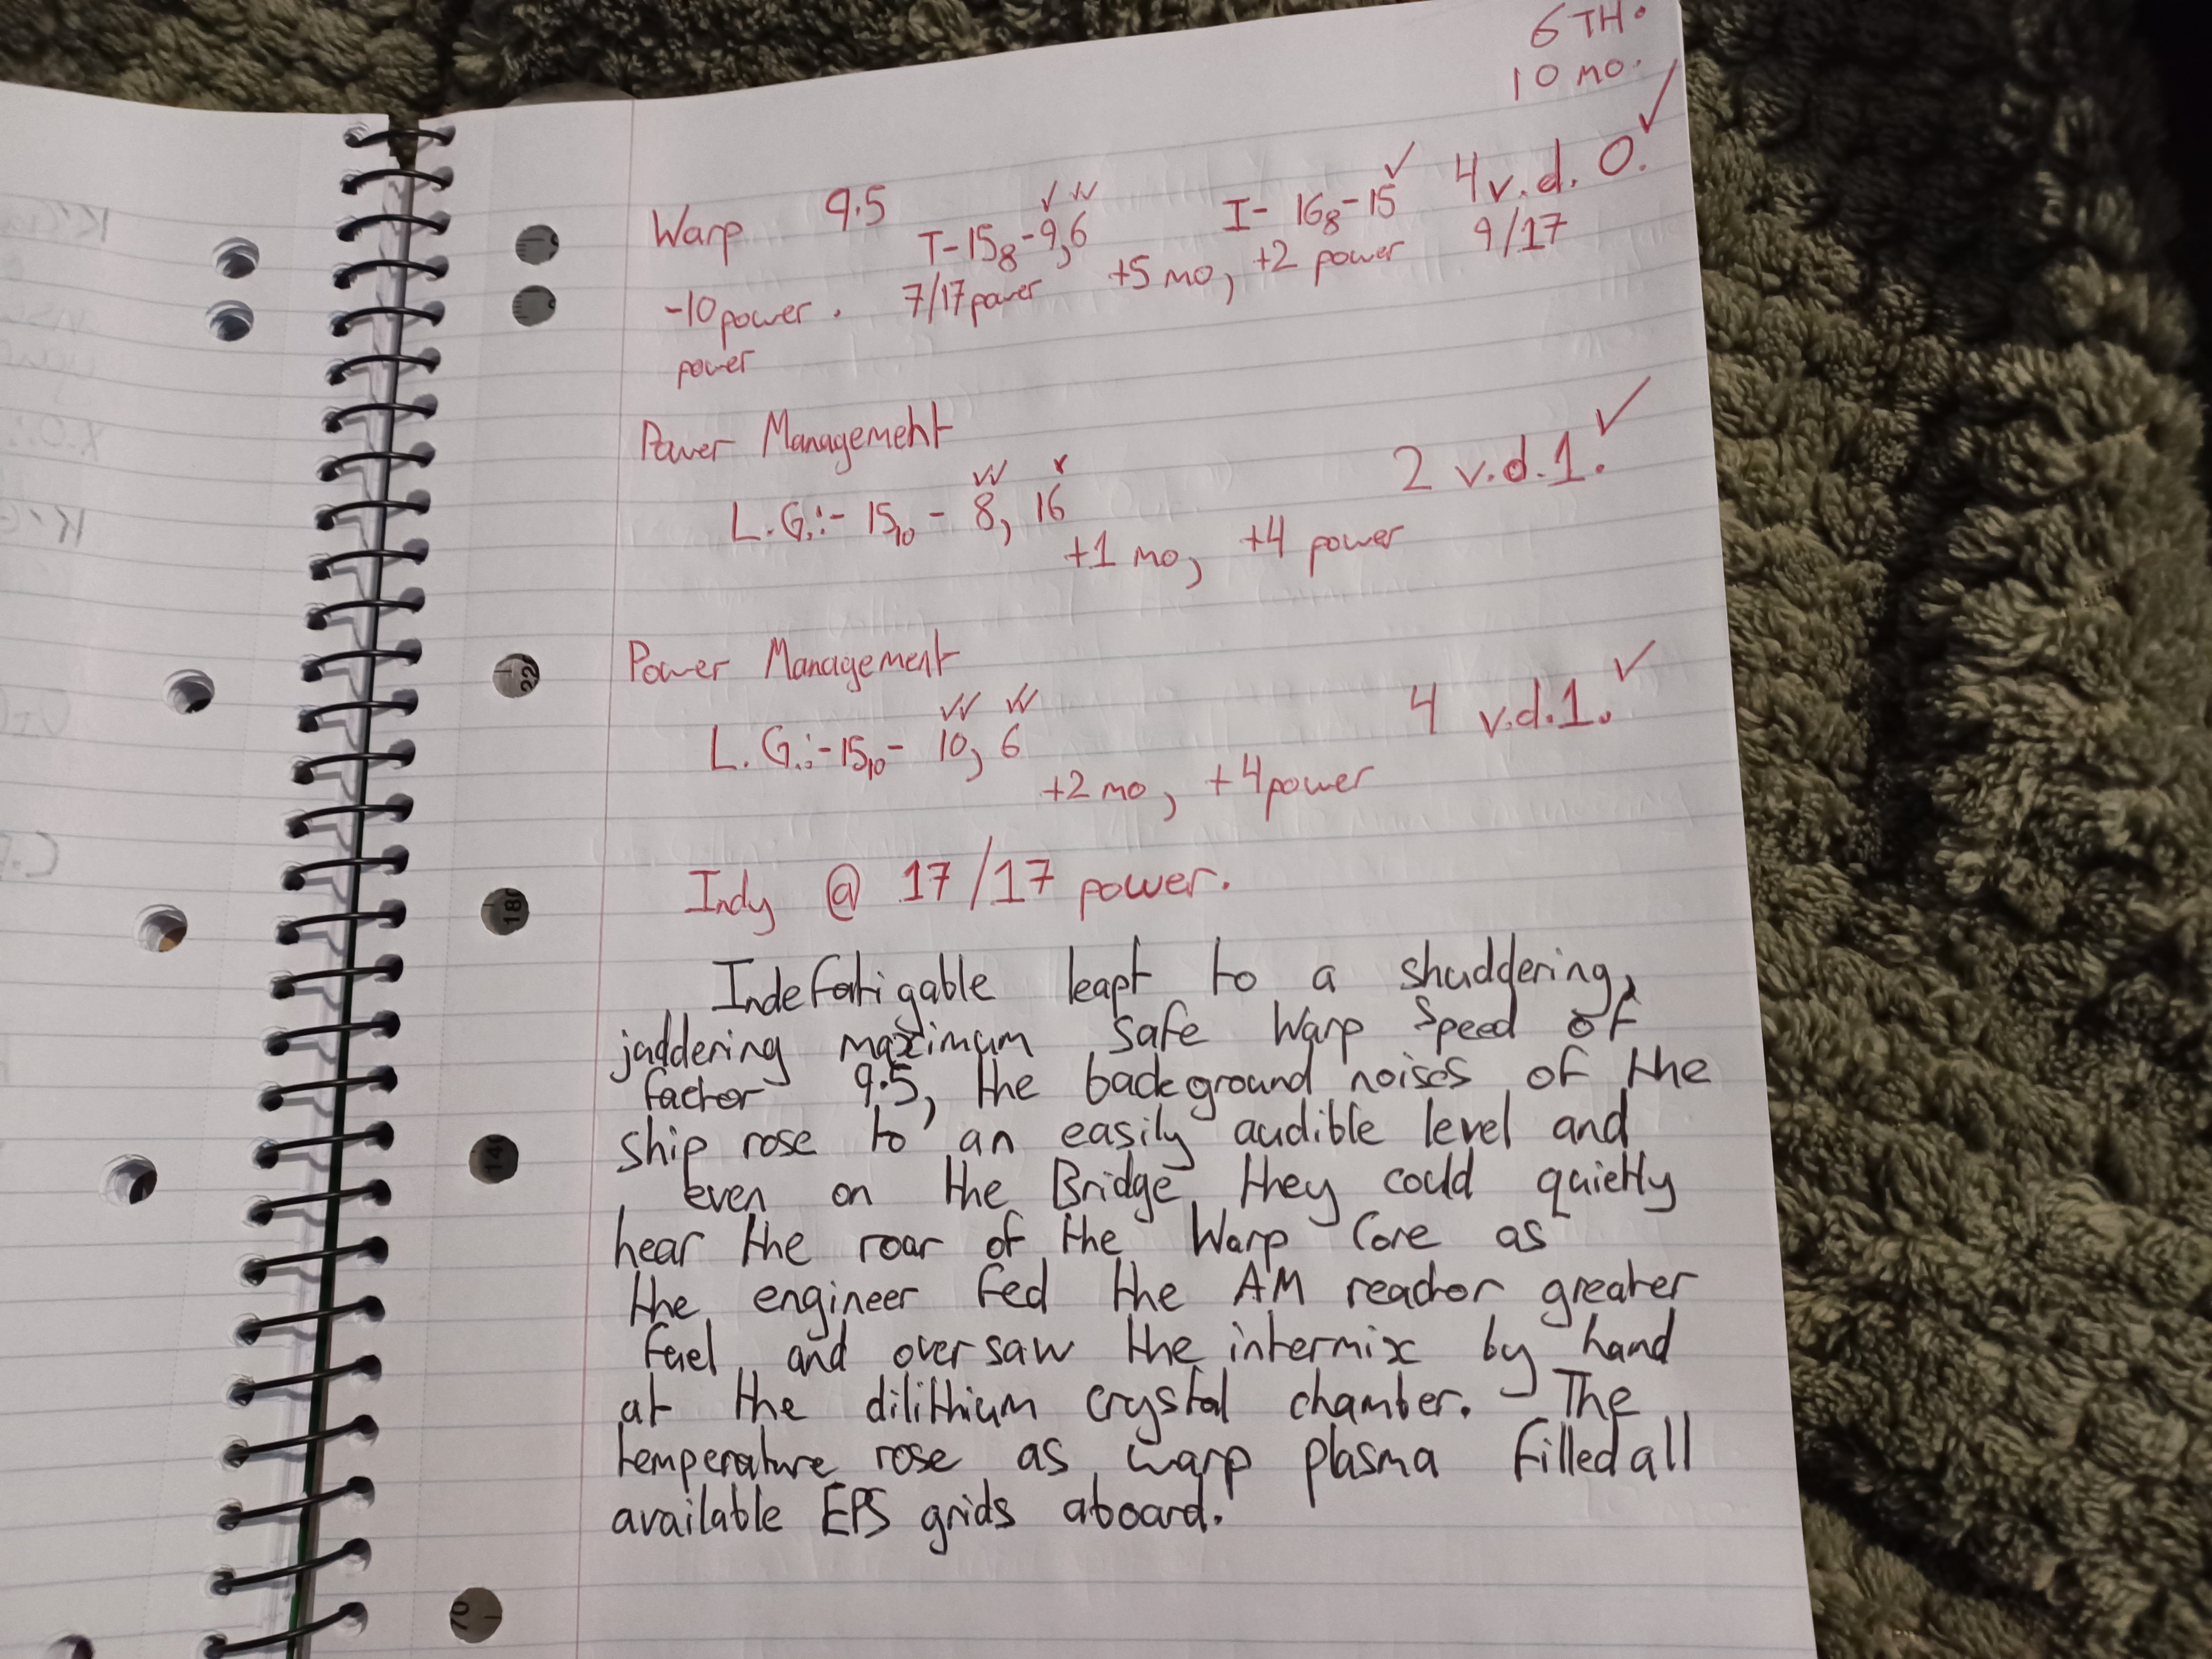 6 TH.
10 mo.
Warp 9.5 T-15₈-9,6 I- 16₈-15 4 v.d. 0. ✓
✓ ✓✓ ✓
-10 power. 7/17 power +5 mo, +2 power 9/17
power
Power Management
✓✓ ✓
L.G.:- 15₁₀ - 8, 16 2 v.d.1. ✓
+1 mo, +4 power
Power Management
✓✓ ✓✓
L. G.:-15₁₀- 10, 6 4 v.d.1. ✓
+2 mo, +4 power
Indy @ 17/17 power.
Indefatigable leapt to a shuddering,
juddering maximum safe Warp Speed of
factor 9.5, the background noises of the
ship rose to an easily audible level and
even on the Bridge they could quietly
hear the roar of the Warp Core as
the engineer fed the AM reactor greater
fuel and oversaw the intermix by hand
at the dilithium crystal chamber. The
temperature rose as warp plasma filled all
available EPS grids aboard.
22
180
14
70